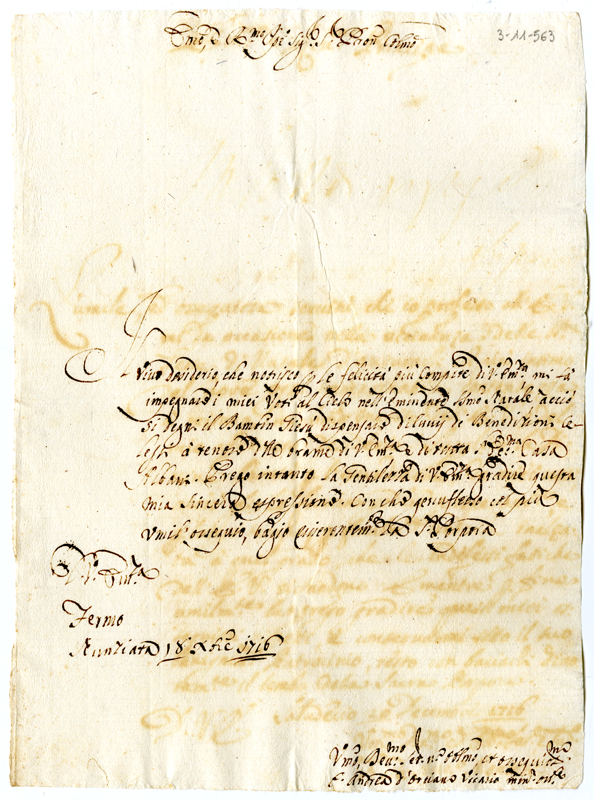 3-11-563
Em.o, e R.mo Sig.r Sig.r Pron Colmo
Il
vivo desiderio, che nutrisco p le felicità più compite di V. Em.za mi fà
impegnare i miei Voti al Cielo nell'Iminente Smo Natale acciò
si degni il Bambin Giesù dispensare diluvij de Benedizioni Ce-
lesti à tenore delle brame di V. Em.za e di tutta l'Ecc.ma Casa
Albani. Prego intanto la Gentilezza di V. Em.za gradire questa
mia sincera espressione. Con che genuflesso col più
umile ossequio, bagio riverentem.te la S. Porpora
D. V. Em.za
Fermo
Nunziata 18 Xbre 1716
Umo, Devmo Ser.re oblmo, et ossequimo
F. Andrea d'Orciano Vicario